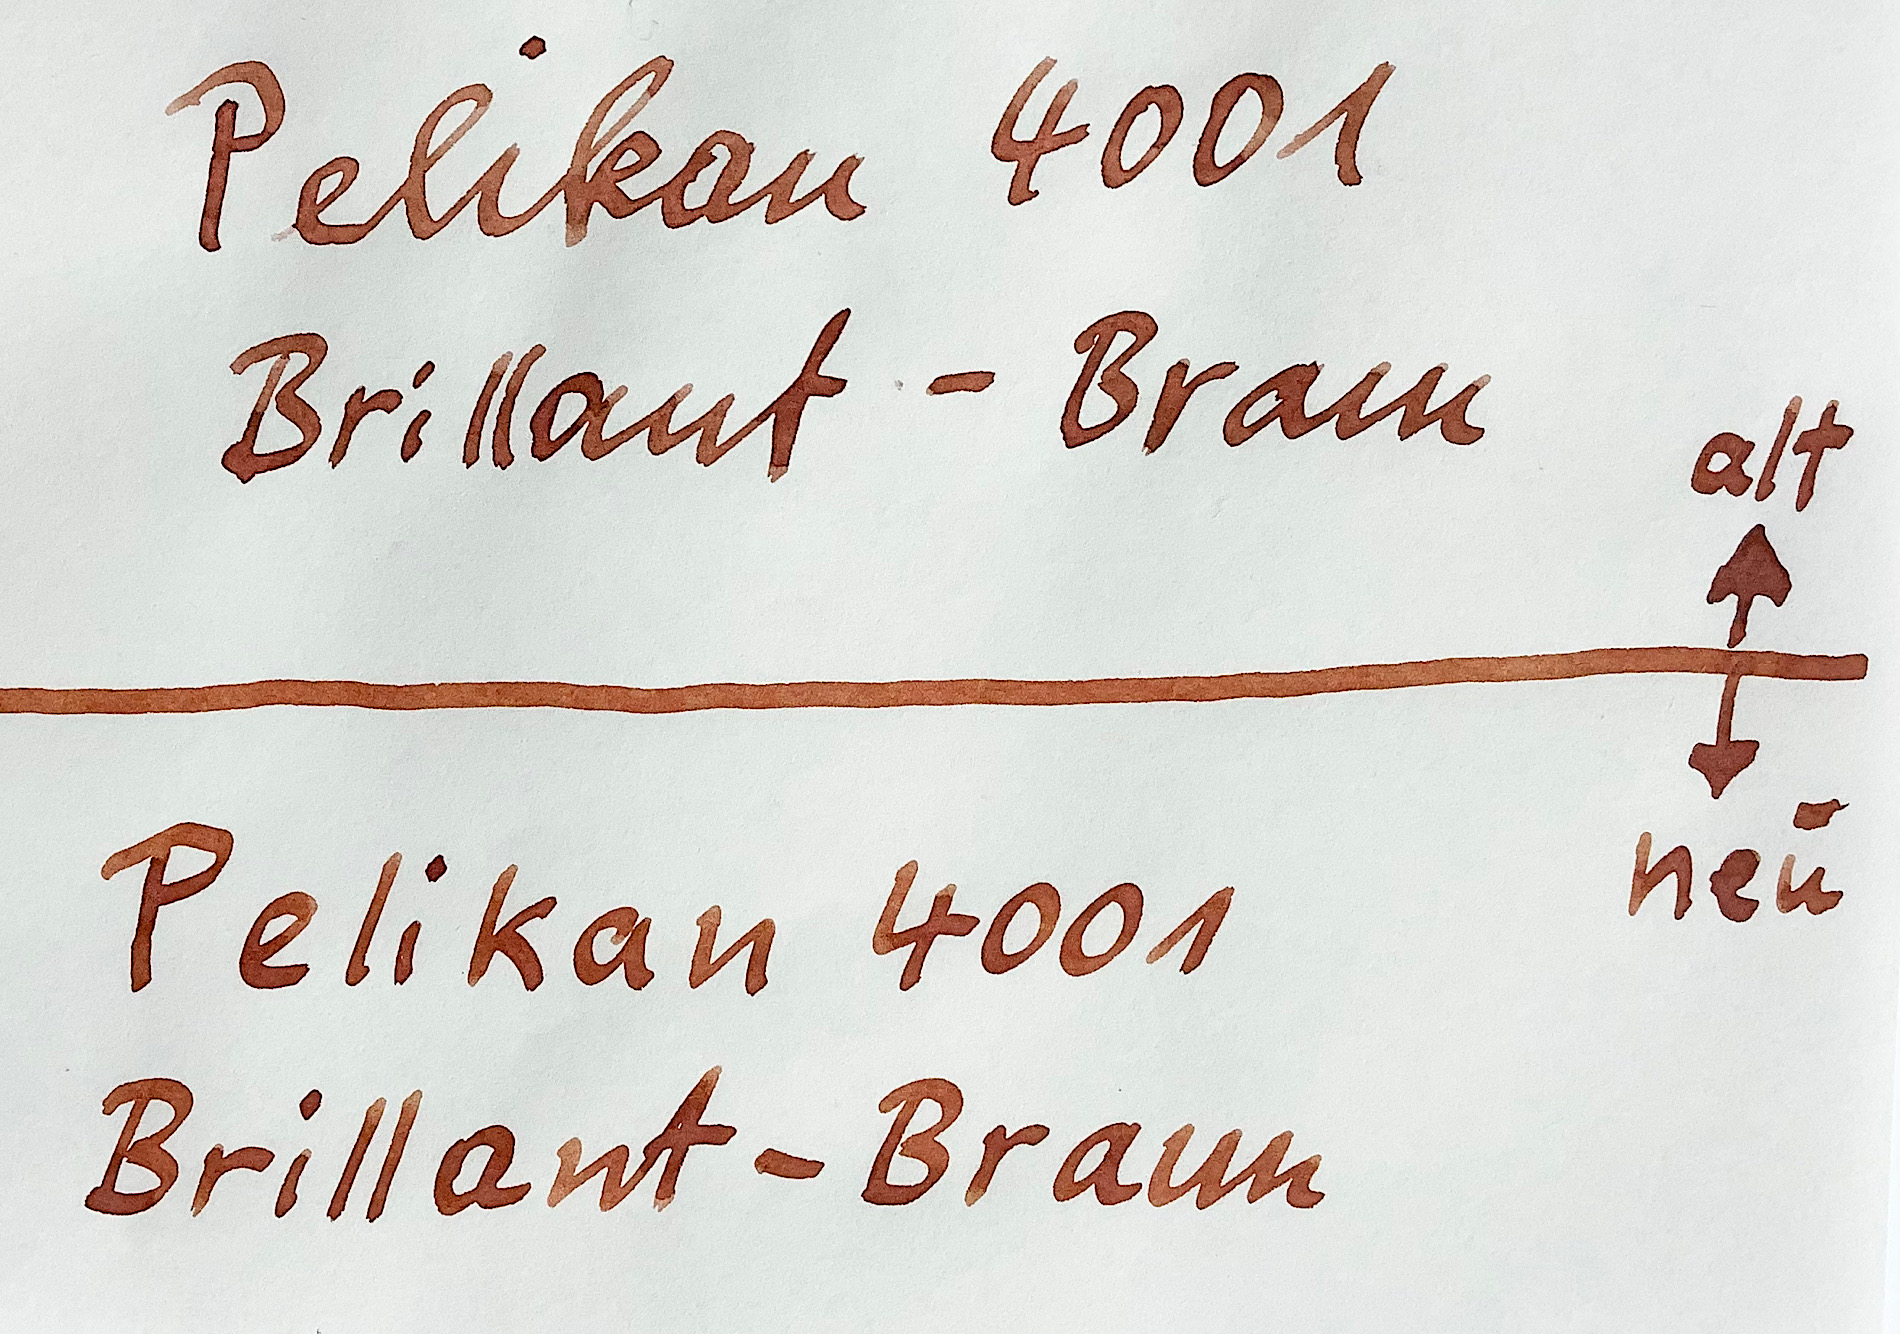 Pelikan 4001
Brillant - Braun
alt
neu
Pelikan 4001
Brillant - Braun